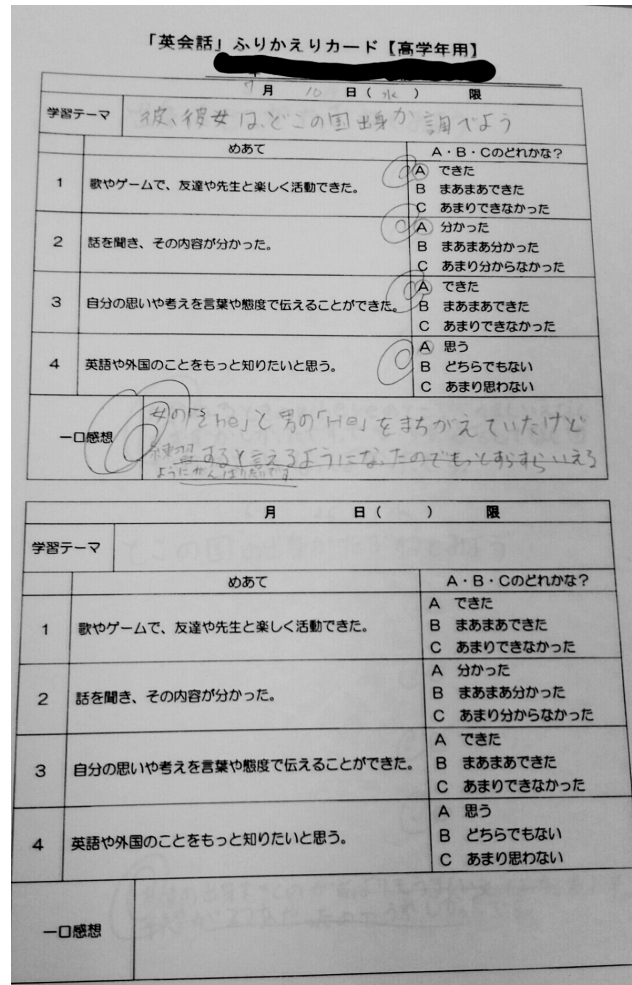 「英会話」ふりかえりカード【高学年用】
7月 10日（水） 限
学習テーマ 彼、彼女は、どこの国出身か調べよう
めあて A・B・Cのどれかな？
1 歌やゲームで、友達や先生と楽しく活動できた。
A できた
B まあまあできた
C あまりできなかった
2 話を聞き、その内容が分かった。
A 分かった
B まあまあ分かった
C あまり分からなかった
3 自分の思いや考えを言葉や態度で伝えることができた。
A できた
B まあまあできた
C あまりできなかった
4 英語や外国のことをもっと知りたいと思う。
A 思う
B どちらでもない
C あまり思わない
一口感想 女の「She」と男の「He」をまちがえていたけど
練習すると言えるようになったのでもっとすらすらいえる
ようにがんばりたいです
月 日（ ） 限
学習テーマ
めあて A・B・Cのどれかな？
1 歌やゲームで、友達や先生と楽しく活動できた。
A できた
B まあまあできた
C あまりできなかった
2 話を聞き、その内容が分かった。
A 分かった
B まあまあ分かった
C あまり分からなかった
3 自分の思いや考えを言葉や態度で伝えることができた。
A できた
B まあまあできた
C あまりできなかった
4 英語や外国のことをもっと知りたいと思う。
A 思う
B どちらでもない
C あまり思わない
一口感想